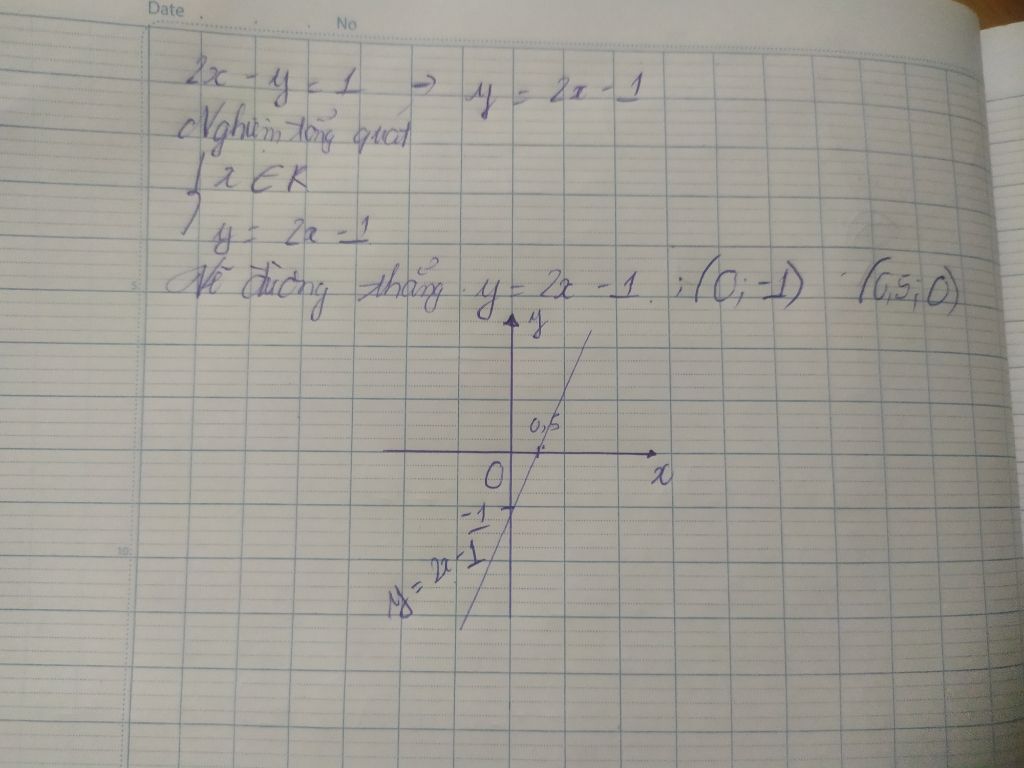 Date . . . No
2x - y = 1 → y = 2x - 1
Nghiệm tổng quát
{ x ∈ R
y = 2x - 1
Vẽ đường thẳng y = 2x - 1 ; (0; -1) (0,5; 0)
y
0,5
O x
-1
y = 2x - 1
5
10